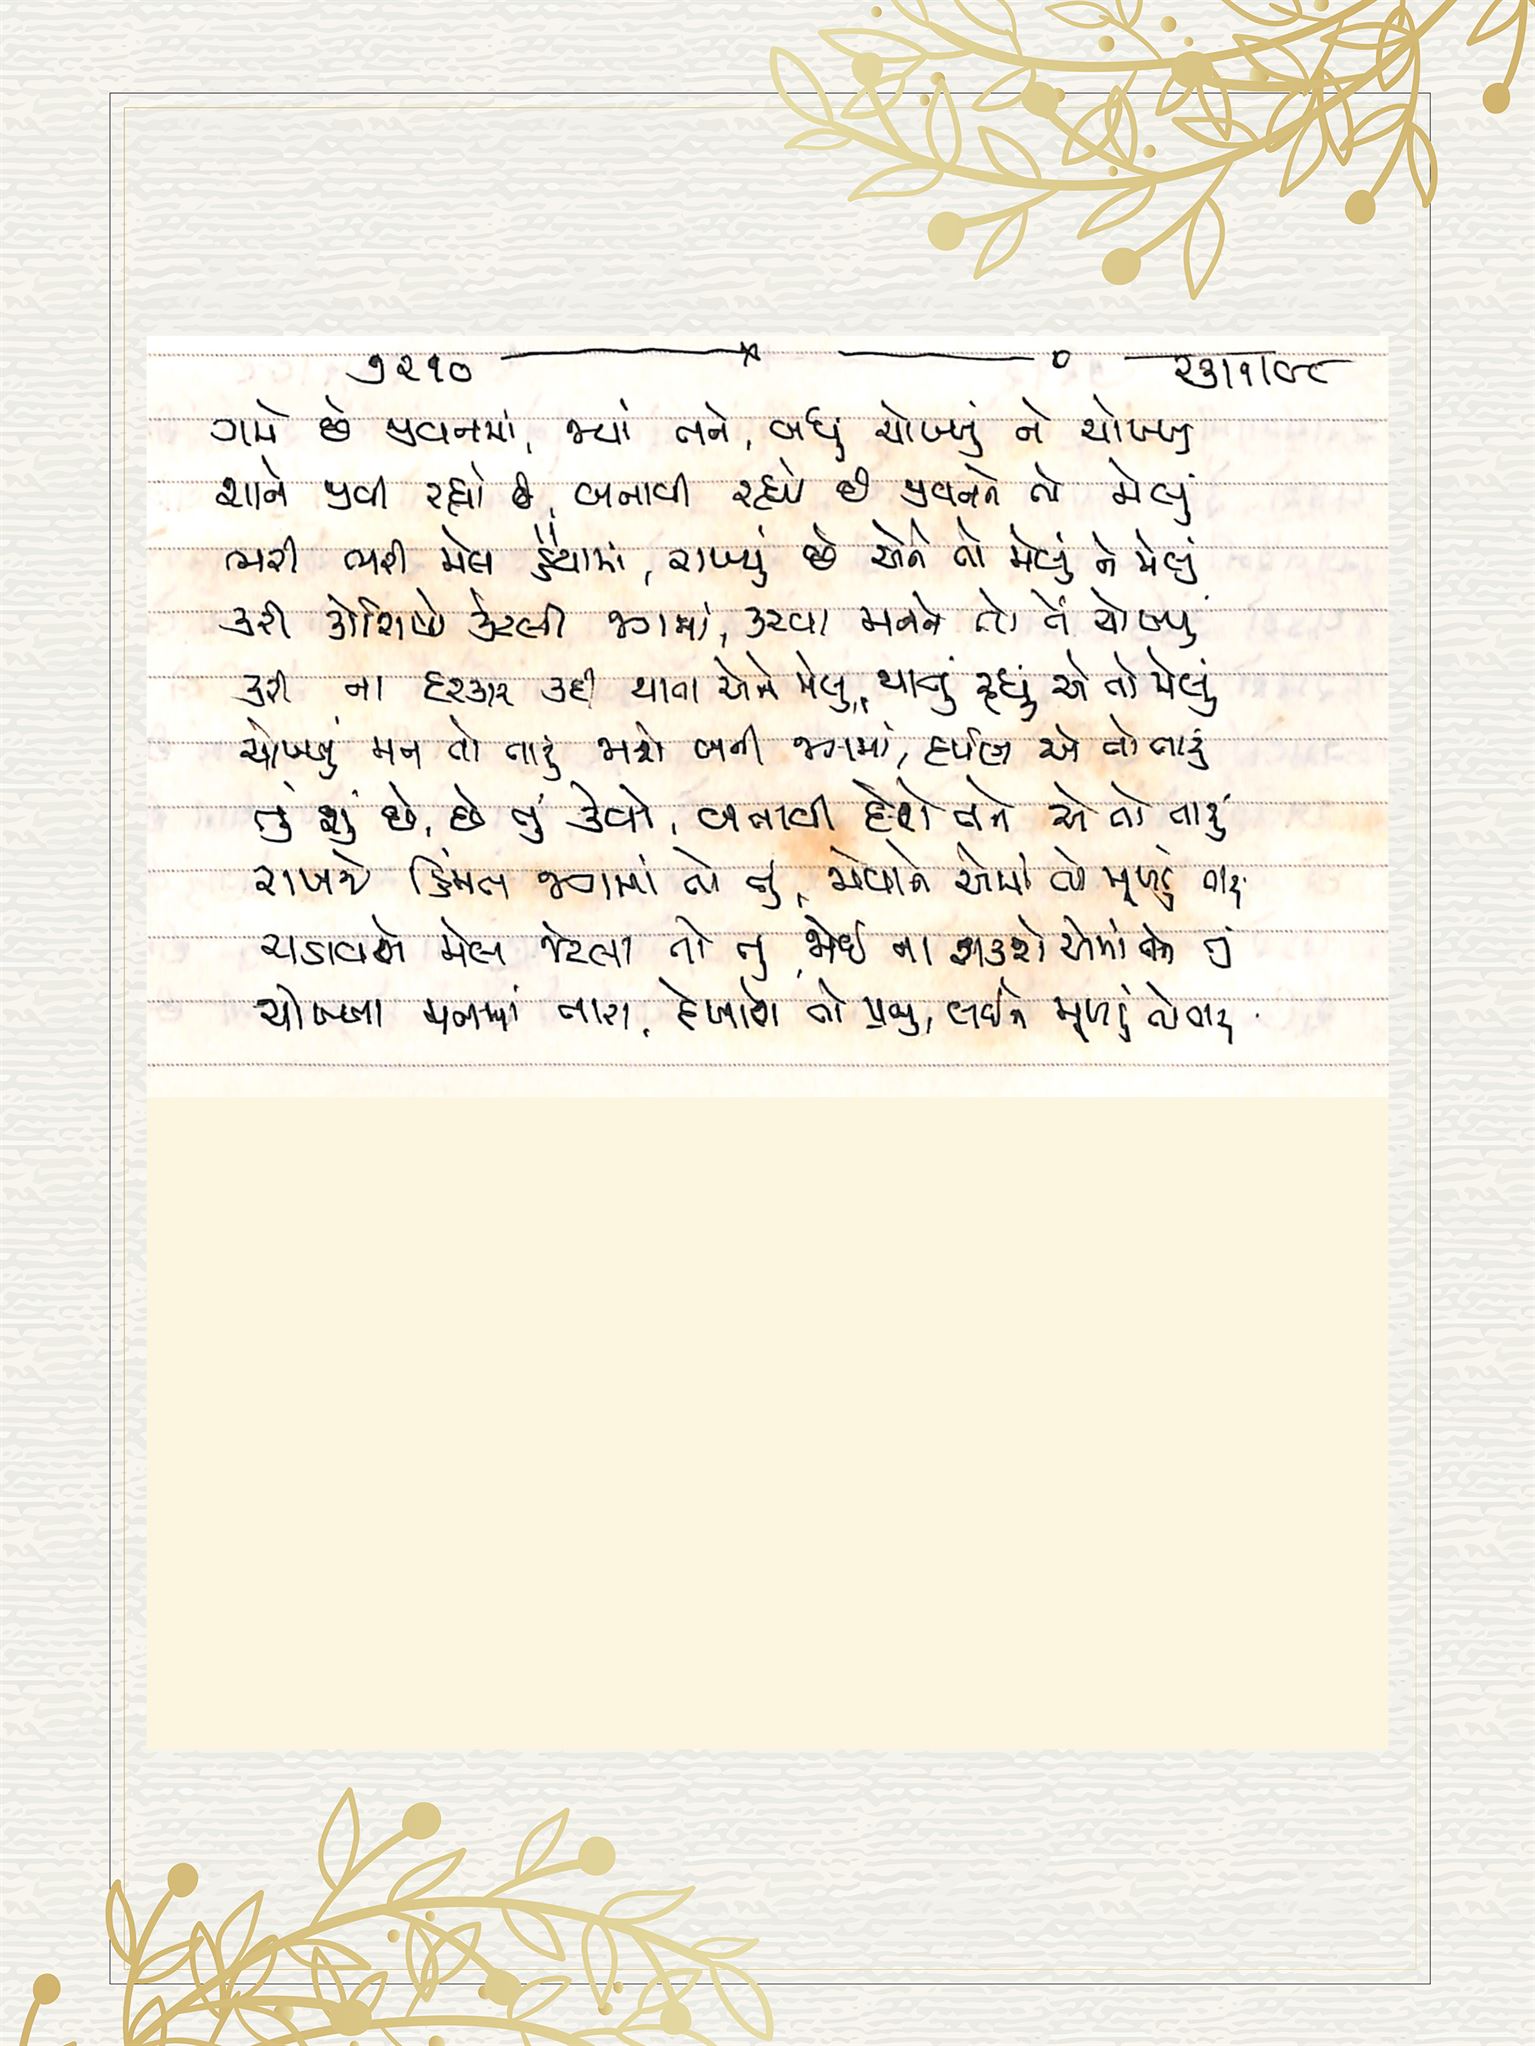 ૭૨૧૦ ૨૩|૧|૯૮
ગમે છે જીવનમાં, જ્યાં તને, બધું ચોખ્ખું ને ચોખ્ખું
શાને જીવી રહ્યો છે, બનાવી રહ્યો છે જીવનને તો મેલું
ભરી ભરી મેલ હૈયામાં, રાખ્યું છે એને તો મેલું ને મેલું
કરી કોશિષો કેટલી જગમાં, કરવા મનને તો તેં ચોખ્ખુ
કરી ના દરકાર કદી થાતા એને મેલુ, થાતું રહ્યું એ તો મેલું
ચોખ્ખું મન તો તારું જાશે બની જગમાં, દર્પણ એ તો તારું
તું શું છે, છે તું કેવો, બનાવી દેશે તને એ તો તારું
રાખજે કિંમત જગમાં તો તું, મેલોને એમાં તો મૂખડું તારું
ચડાવશે મેલ જેટલા તો તુ, જોઈ ના શકશે એમાં તને તું
ચોખ્ખા મનમાં તારા, દેખાશે તો પ્રભુ, લઈને મૂખડું તો તારું